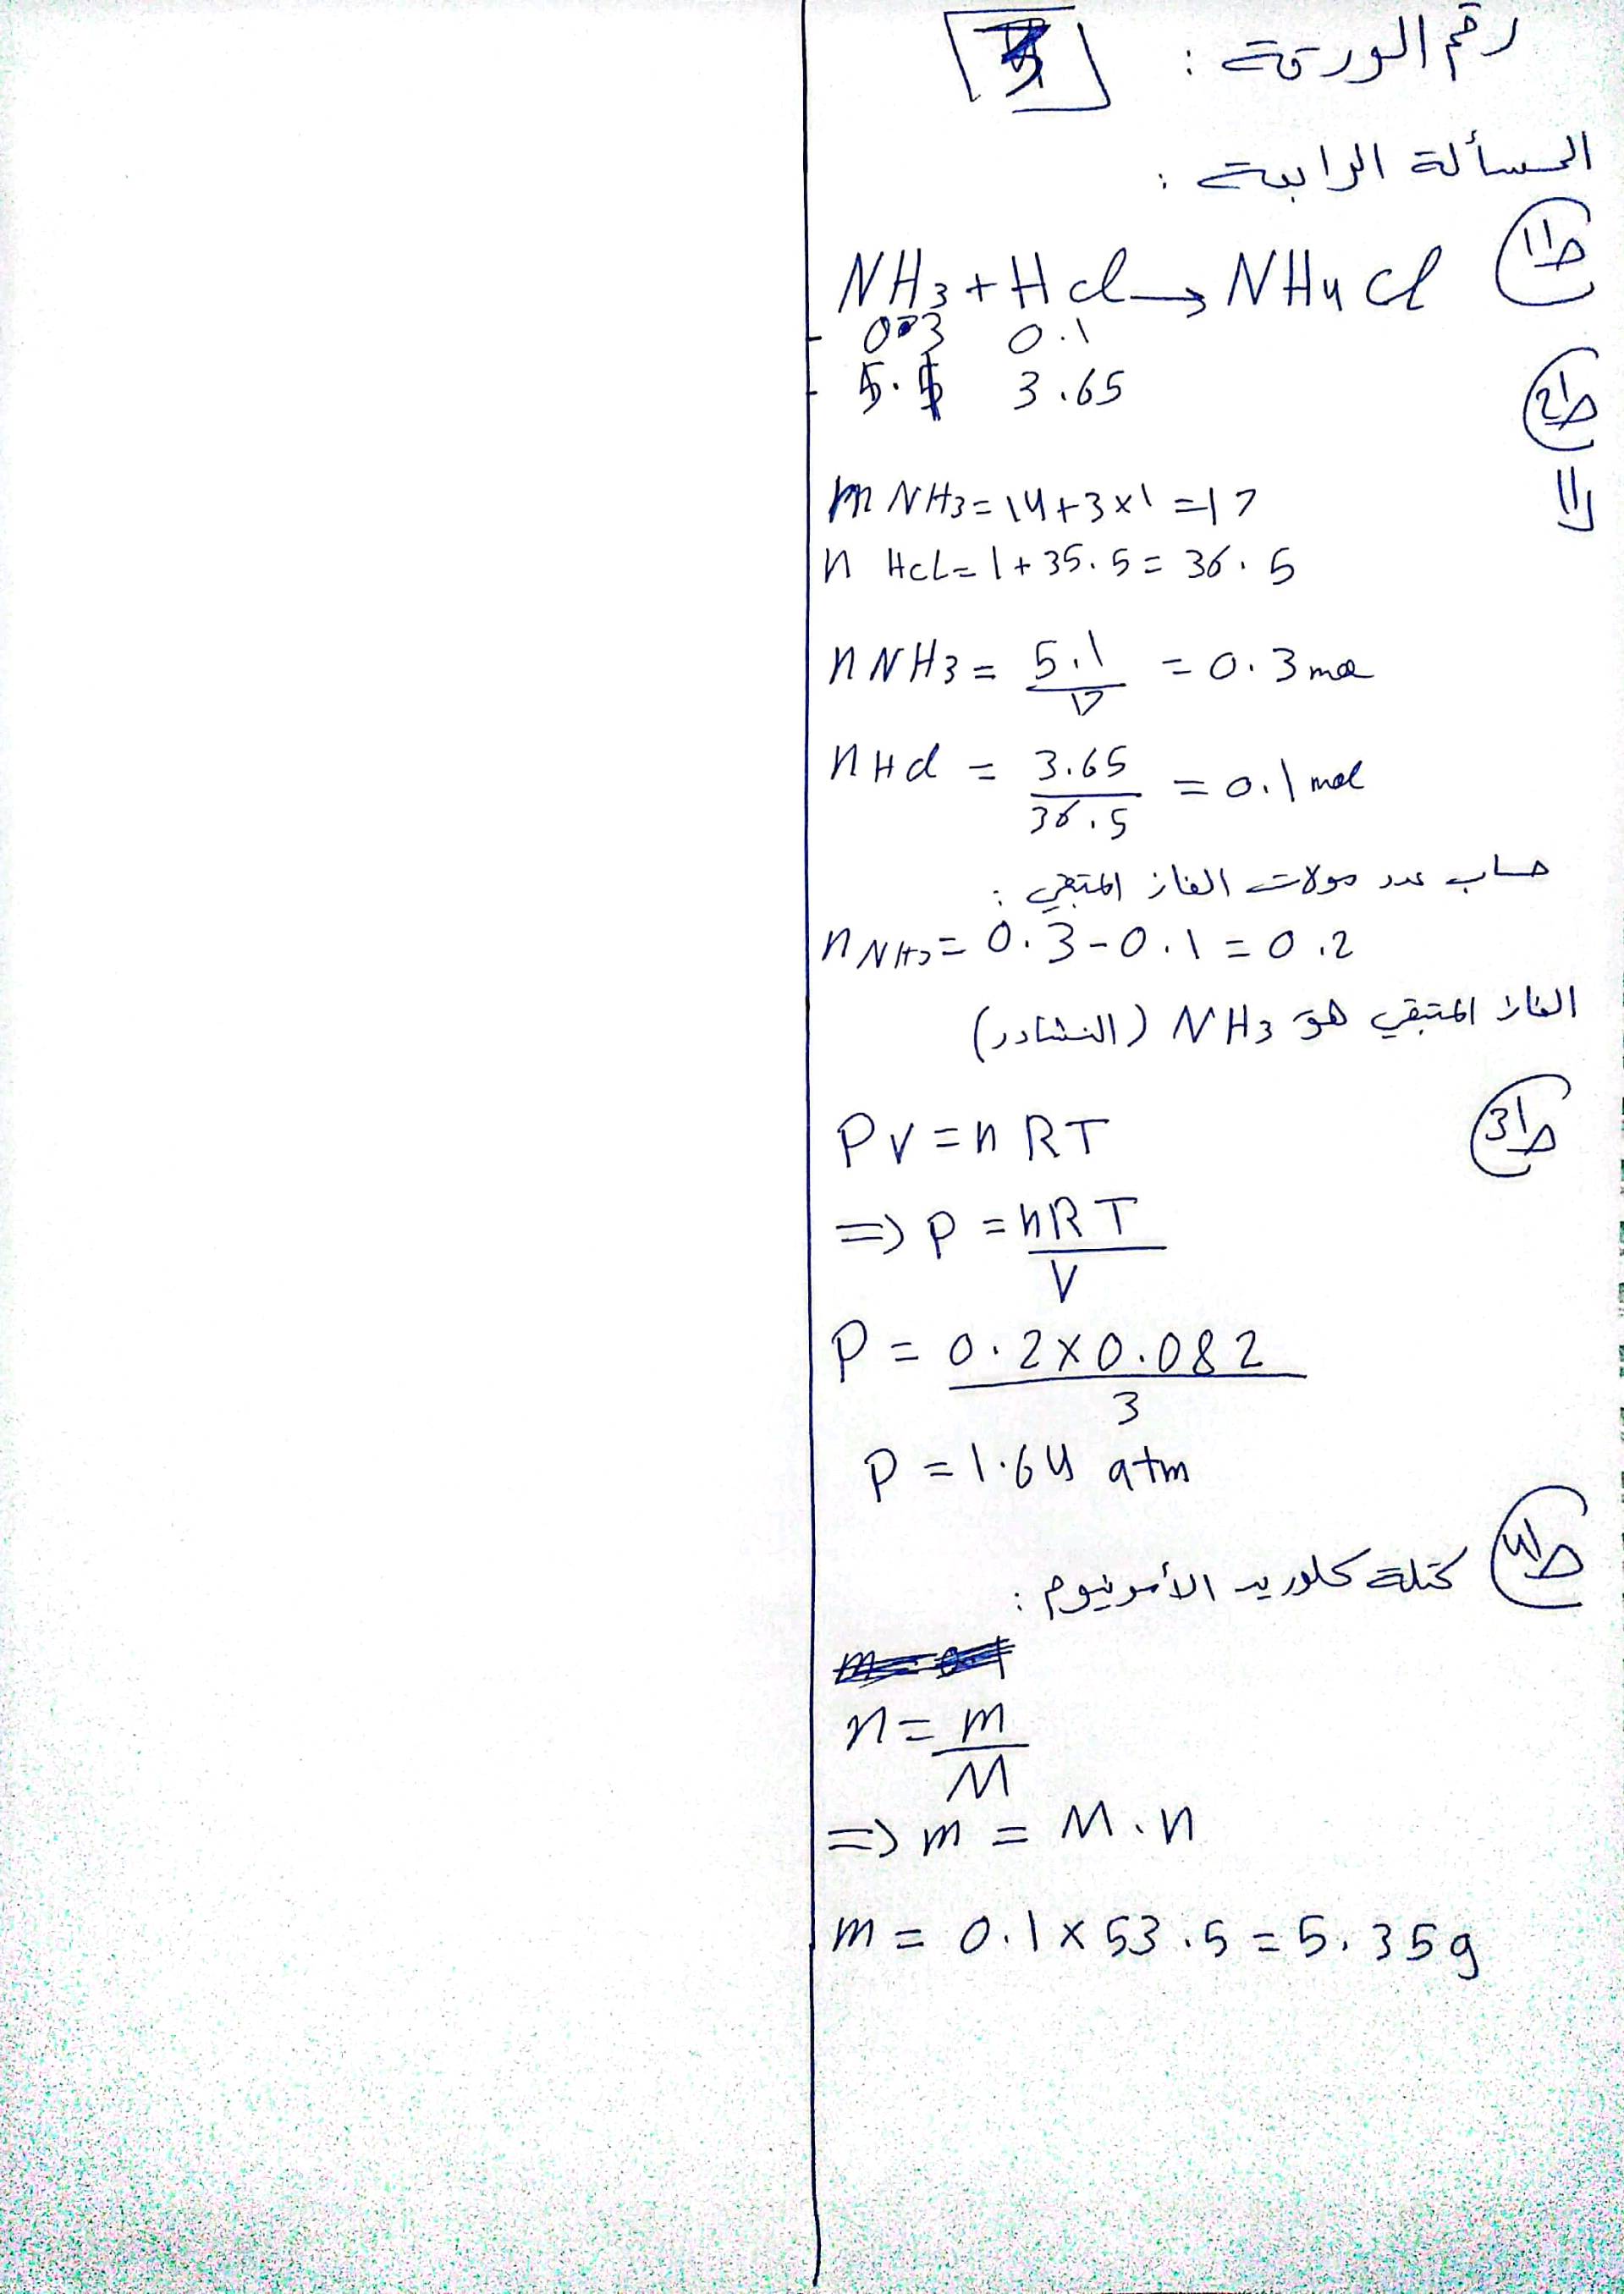 رقم الورقة :
المسألة الرابعة :
ط1 NH3 + HCl → NH4Cl
0.3 0.1
ط2 5.1 3.65
m NH3 = 14 + 3 × 1 = 17
n HCl = 1 + 35.5 = 36.5
n NH3 = 5.1 / 17 = 0.3 mol
n HCl = 3.65 / 36.5 = 0.1 mol
حساب عدد مولات الغاز المتبقي :
n NH3 = 0.3 - 0.1 = 0.2
الغاز المتبقي هو NH3 (النشادر)
ط3 PV = nRT
=> P = nRT / V
P = 0.2 × 0.082 / 3
P = 1.64 atm
ط4 كتلة كلوريد الأمونيوم :
n = m / M
=> m = M . n
m = 0.1 × 53.5 = 5.35 g